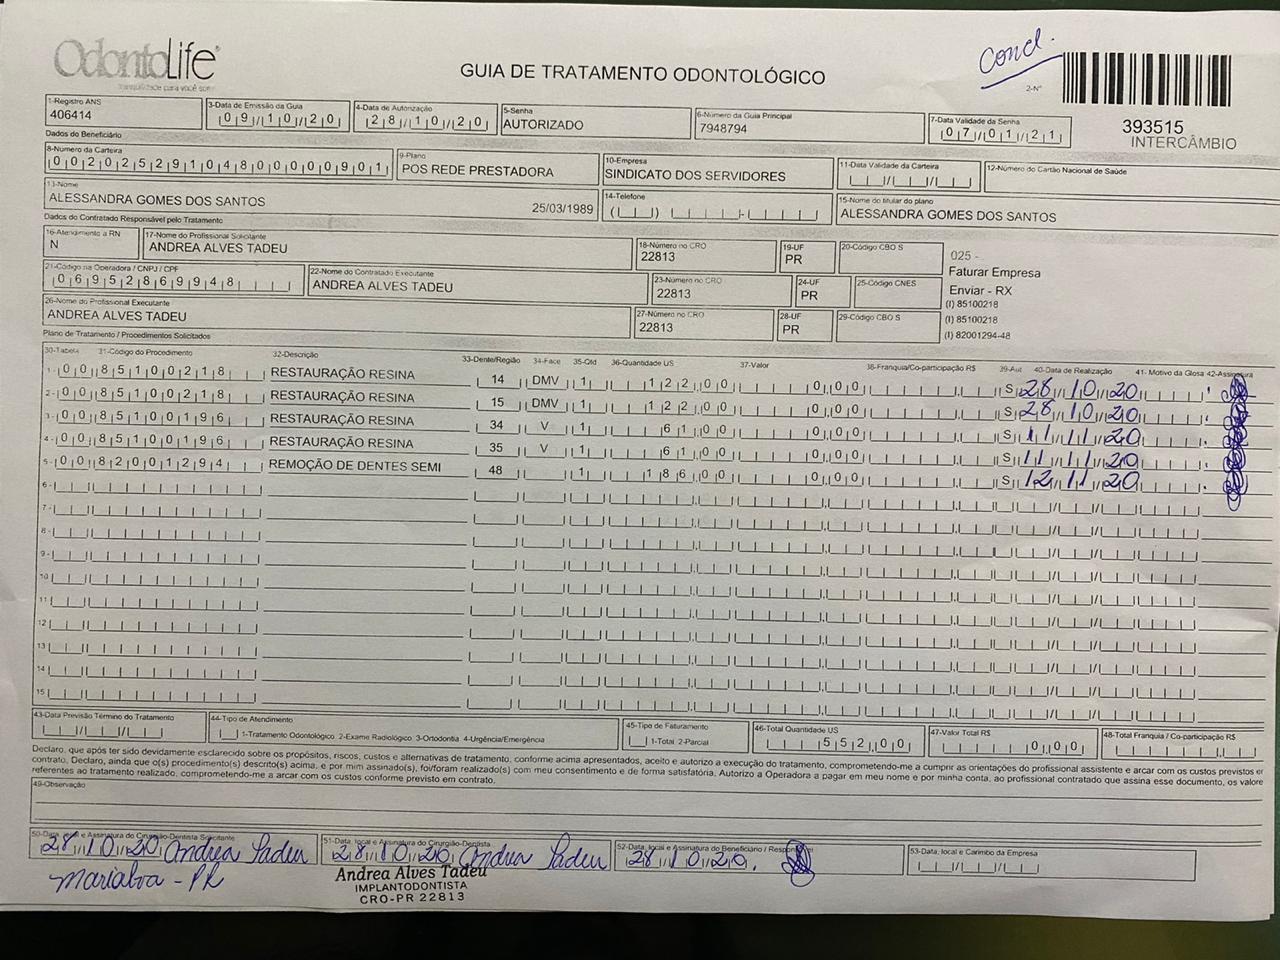 OdontoLife
tranquilidade para você sorrir
GUIA DE TRATAMENTO ODONTOLÓGICO
Concl.
2-Nº
393515
INTERCÂMBIO
1-Registro ANS
406414
3-Data de Emissão da Guia
09/10/20
4-Data de Autorização
28/10/20
5-Senha
AUTORIZADO
6-Número da Guia Principal
7948794
7-Data Validade da Senha
07/01/21
Dados do Beneficiário
8-Número da Carteira
00202529104800000901
9-Plano
POS REDE PRESTADORA
10-Empresa
SINDICATO DOS SERVIDORES
11-Data Validade da Carteira
12-Número do Cartão Nacional de Saúde
13-Nome
ALESSANDRA GOMES DOS SANTOS 25/03/1989
14-Telefone
15-Nome do titular do plano
ALESSANDRA GOMES DOS SANTOS
Dados do Contratado Responsável pelo Tratamento
16-Atendimento a RN
N
17-Nome do Profissional Solicitante
ANDREA ALVES TADEU
18-Número no CRO
22813
19-UF
PR
20-Código CBO S
025 -
Faturar Empresa
Enviar - RX
(I) 85100218
(I) 85100218
(I) 82001294-48
21-Código na Operadora / CNPJ / CPF
06952869948
22-Nome do Contratado Executante
ANDREA ALVES TADEU
23-Número no CRO
22813
24-UF
PR
25-Código CNES
26-Nome do Profissional Executante
ANDREA ALVES TADEU
27-Número no CRO
22813
28-UF
PR
29-Código CBO S
Plano de Tratamento / Procedimentos Solicitados
30-Tabela 31-Código do Procedimento 32-Descrição 33-Dente/Região 34-Face 35-Qtd 36-Quantidade US 37-Valor 38-Franquia/Co-participação R$ 39-Aut 40-Data de Realização 41- Motivo da Glosa 42-Assinatura
1- 00 85100218 RESTAURAÇÃO RESINA 14 DMV 1 122,00 0,00 S 28/10/20
2- 00 85100218 RESTAURAÇÃO RESINA 15 DMV 1 122,00 0,00 S 28/10/20
3- 00 85100196 RESTAURAÇÃO RESINA 34 V 1 61,00 0,00 S 11/11/20
4- 00 85100196 RESTAURAÇÃO RESINA 35 V 1 61,00 0,00 S 11/11/20
5- 00 82001294 REMOÇÃO DE DENTES SEMI 48 1 186,00 0,00 S 12/11/20
6-
7-
8-
9-
10
11
12
13
14
15
43-Data Previsão Término do Tratamento
44-Tipo de Atendimento
1-Tratamento Odontológico 2-Exame Radiológico 3-Ortodontia 4-Urgência/Emergência
45-Tipo de Faturamento
1-Total 2-Parcial
46-Total Quantidade US
552,00
47-Valor Total R$
0,00
48-Total Franquia / Co-participação R$
Declaro, que após ter sido devidamente esclarecido sobre os propósitos, riscos, custos e alternativas de tratamento, conforme acima apresentados, aceito e autorizo a execução do tratamento, comprometendo-me a cumprir as orientações do profissional assistente e arcar com os custos previstos em
contrato. Declaro, ainda que o(s) procedimento(s) descrito(s) acima, e por mim assinado(s), foi/foram realizado(s) com meu consentimento e de forma satisfatória. Autorizo a Operadora a pagar em meu nome e por minha conta, ao profissional contratado que assina esse documento, os valores
referentes ao tratamento realizado, comprometendo-me a arcar com os custos conforme previsto em contrato.
49-Observação
50-Data, local e Assinatura do Cirurgião-Dentista Solicitante
28/10/20, Andrea Tadeu
Marialva - PR
51-Data, local e Assinatura do Cirurgião-Dentista
28/10/20, Andrea Tadeu
Andrea Alves Tadeu
IMPLANTODONTISTA
CRO-PR 22813
52-Data, local e Assinatura do Beneficiário / Responsável
28/10/20,
53-Data, local e Carimbo da Empresa